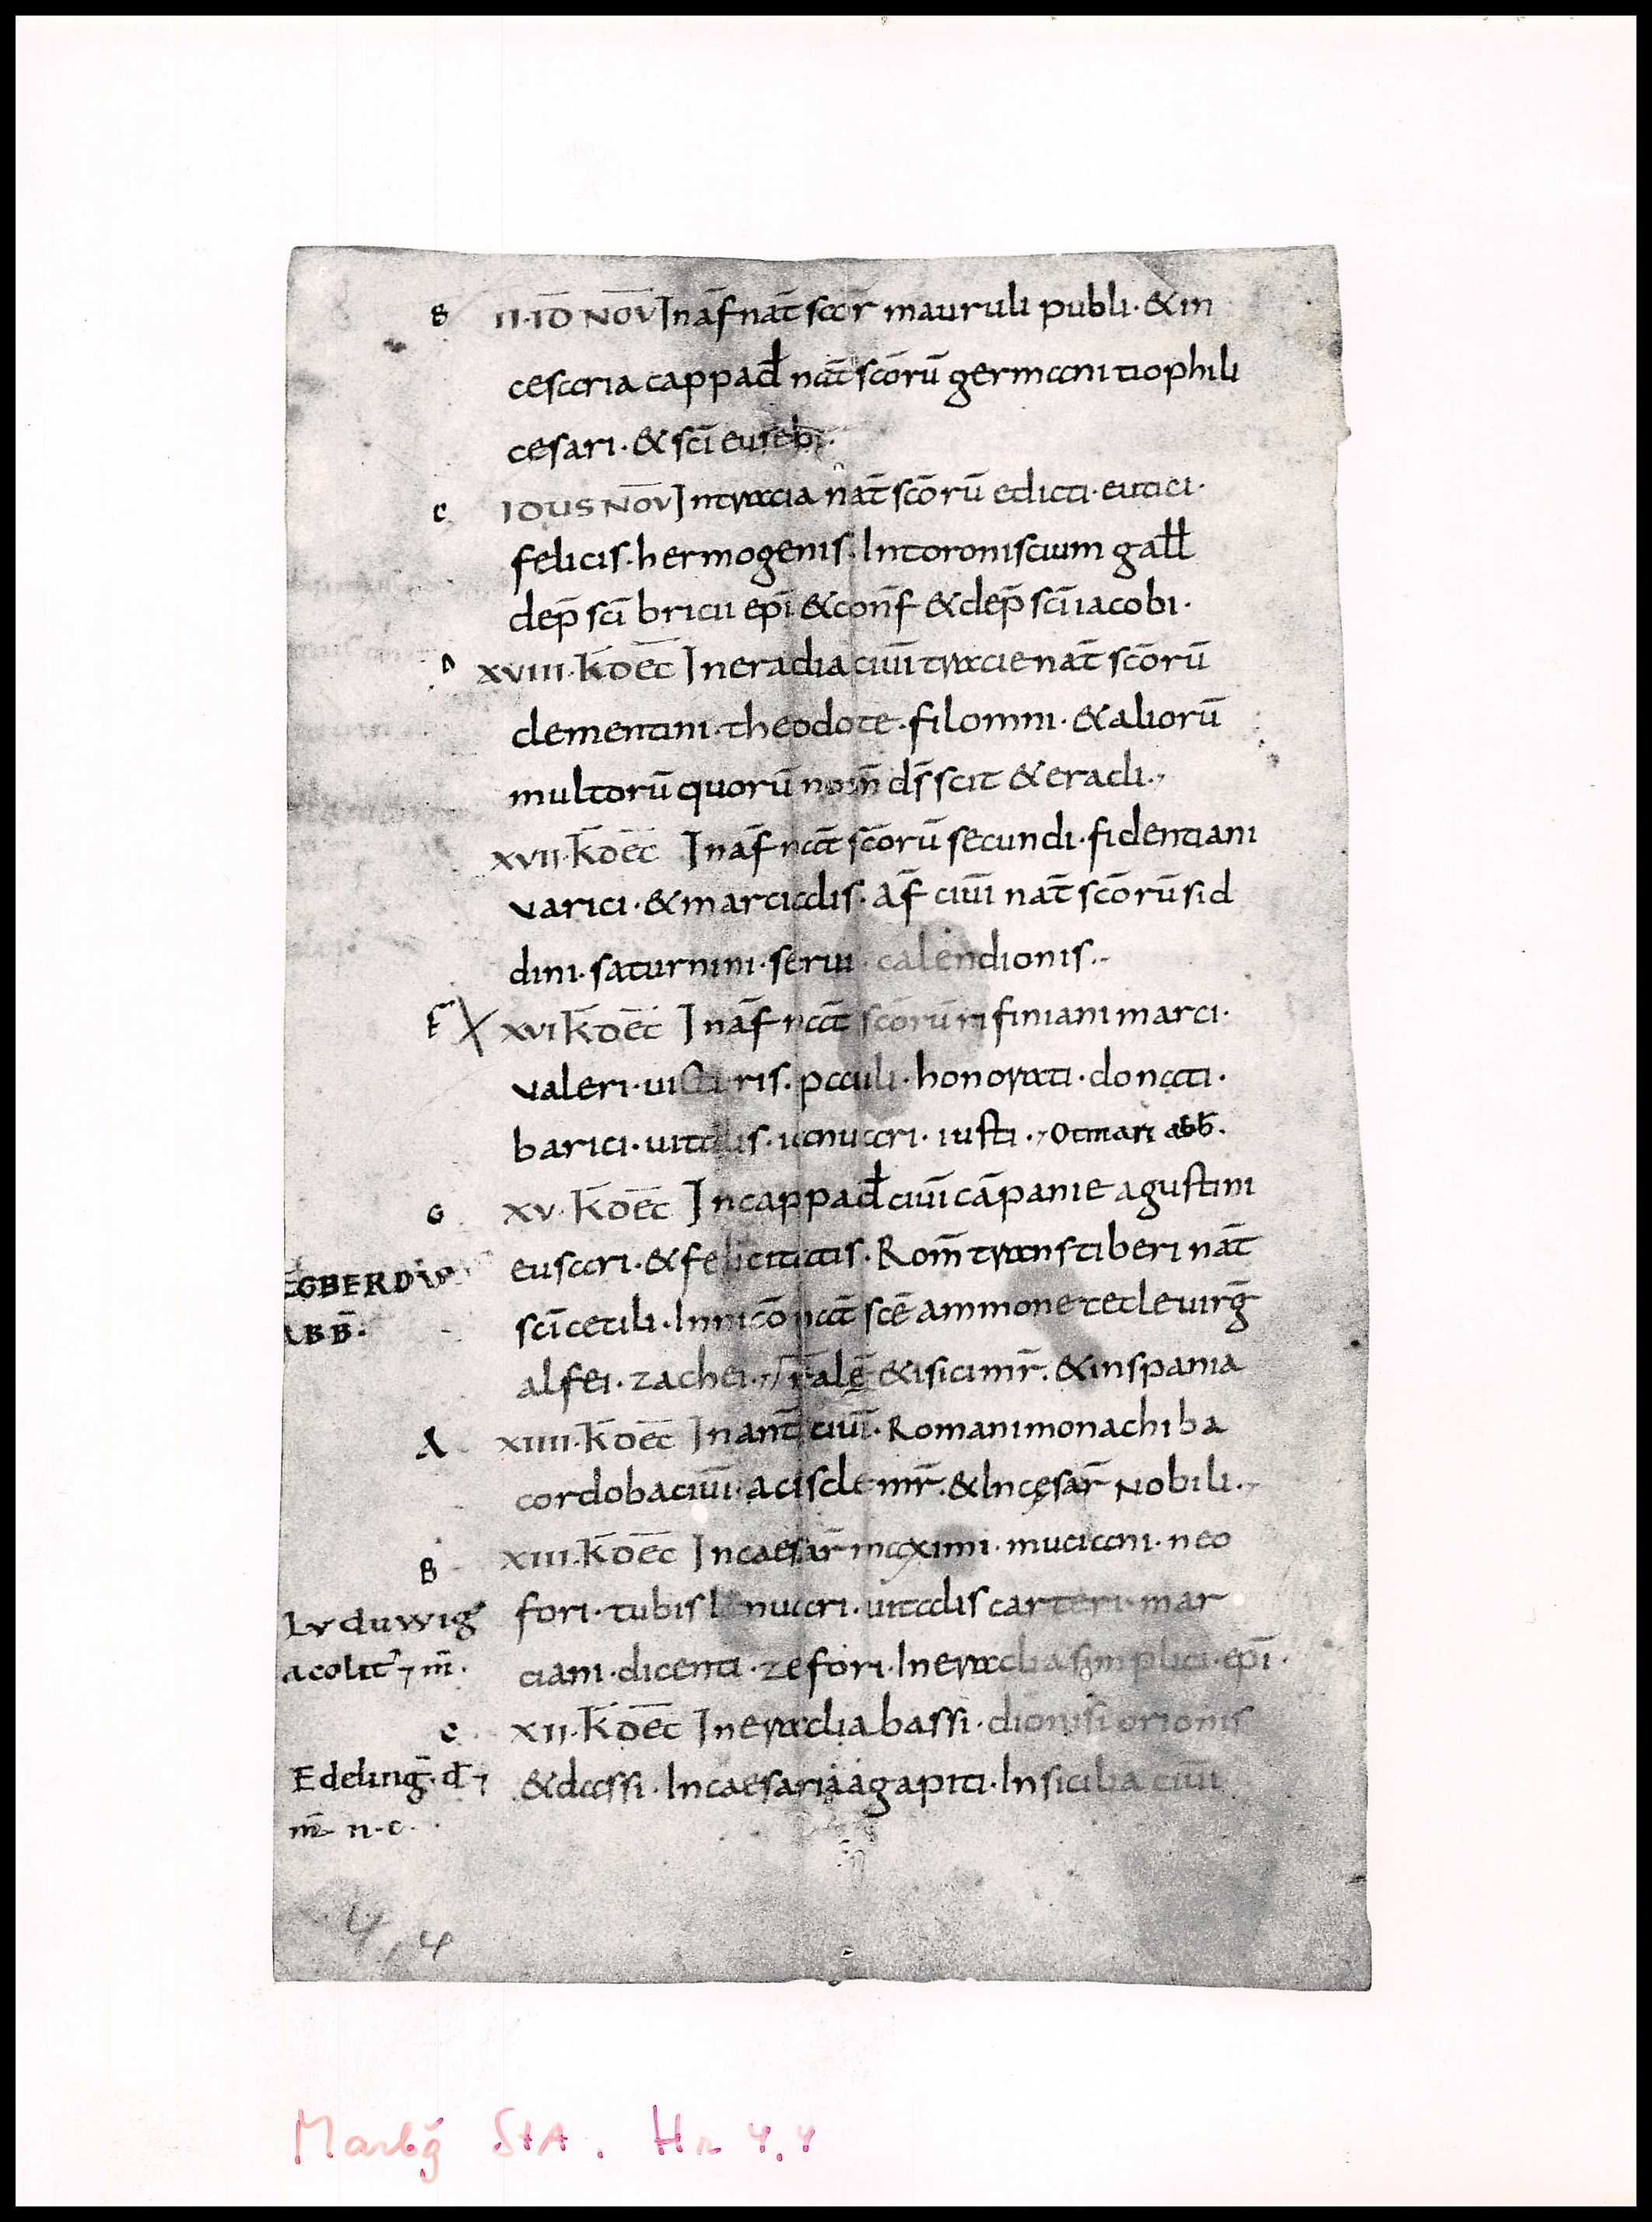 B II·ID NOV̄ In af̄ nat̄ scor̄ mauruli publi· & in
cesaria cappad̄ nat̄ scōrū germani tiophili
cesari· & sc̄i eusebi·
C IDUS NOV̄ In tracia nat̄ scōrū edicti· eutici·
felicis· hermogenis· In toronis cium gall̄
dep̄ sc̄i bricii ep̄i & conf̄ & dep̄ sc̄i iacobi·
D XVIII· K̄ DEC̄ In eradia ciuī tracie nat̄ scōrū
clementini· theodote· filomni· & aliorū
multorū quorū nom̄ ds̄ scit & eracli·
XVII· K̄ DEC̄ In af̄ nat̄ scōrū secundi· fidentiani
varici· & marcialis· af̄ ciuī nat̄ scōrū sid
dini· saturnini· serui calendionis·
F X XVI K̄ DEC̄ In af̄ nat̄ scōrū rifiniani marci·
valeri· uictiris· pauli· honorati· donati·
barici· uitalis· ianuari· iusti· Otmari abb̄·
G XV· K̄ DEC̄ In cappad̄ ciuī cāpanie agustini
eusari· & felicitatis· Rom̄ trans tiberi nat̄
EGBERD
sc̄i cetili· In nicō nat̄ scē ammonetetle uirḡ
ABB̄·
alfei· zachei· & isici mr̄· & in spania
A XIIII· K̄ DEC̄ In ant̄ ciuī· Romani monachi ba
cordoba ciuī· aciscle mr̄· & In cęsar̄ Nobili·
B XIII· K̄ DEC̄ In caesar̄ maximi· muciani· neo
Lvduwig
fori· tubis Ianuari· uitalis carteri· mar
acolit᾽ ⁊ m̄·
ciani· dicenti· zefori· In eraclia simplici· ep̄i·
C XII· K̄ DEC̄ In eraclia bassi· dionisi orionis
Edeling̅· d̄ ⁊
& dassi· In caesaria agapiti· In sicilia ciuī
m̄ n·c·
4,4
Marbg StA. Hr 4,4